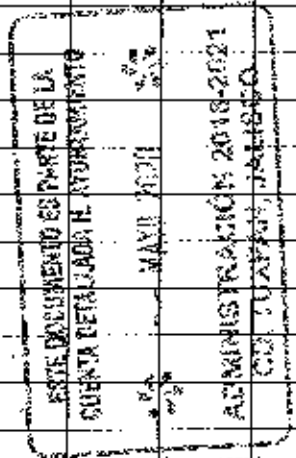 ESTE DOCUMENTO ES PARTE DE LA
CUENTA DETALLADA H. AYUNTAMIENTO
ADMINISTRACIÓN 2018-2021
CD. TUXPAN, JALISCO